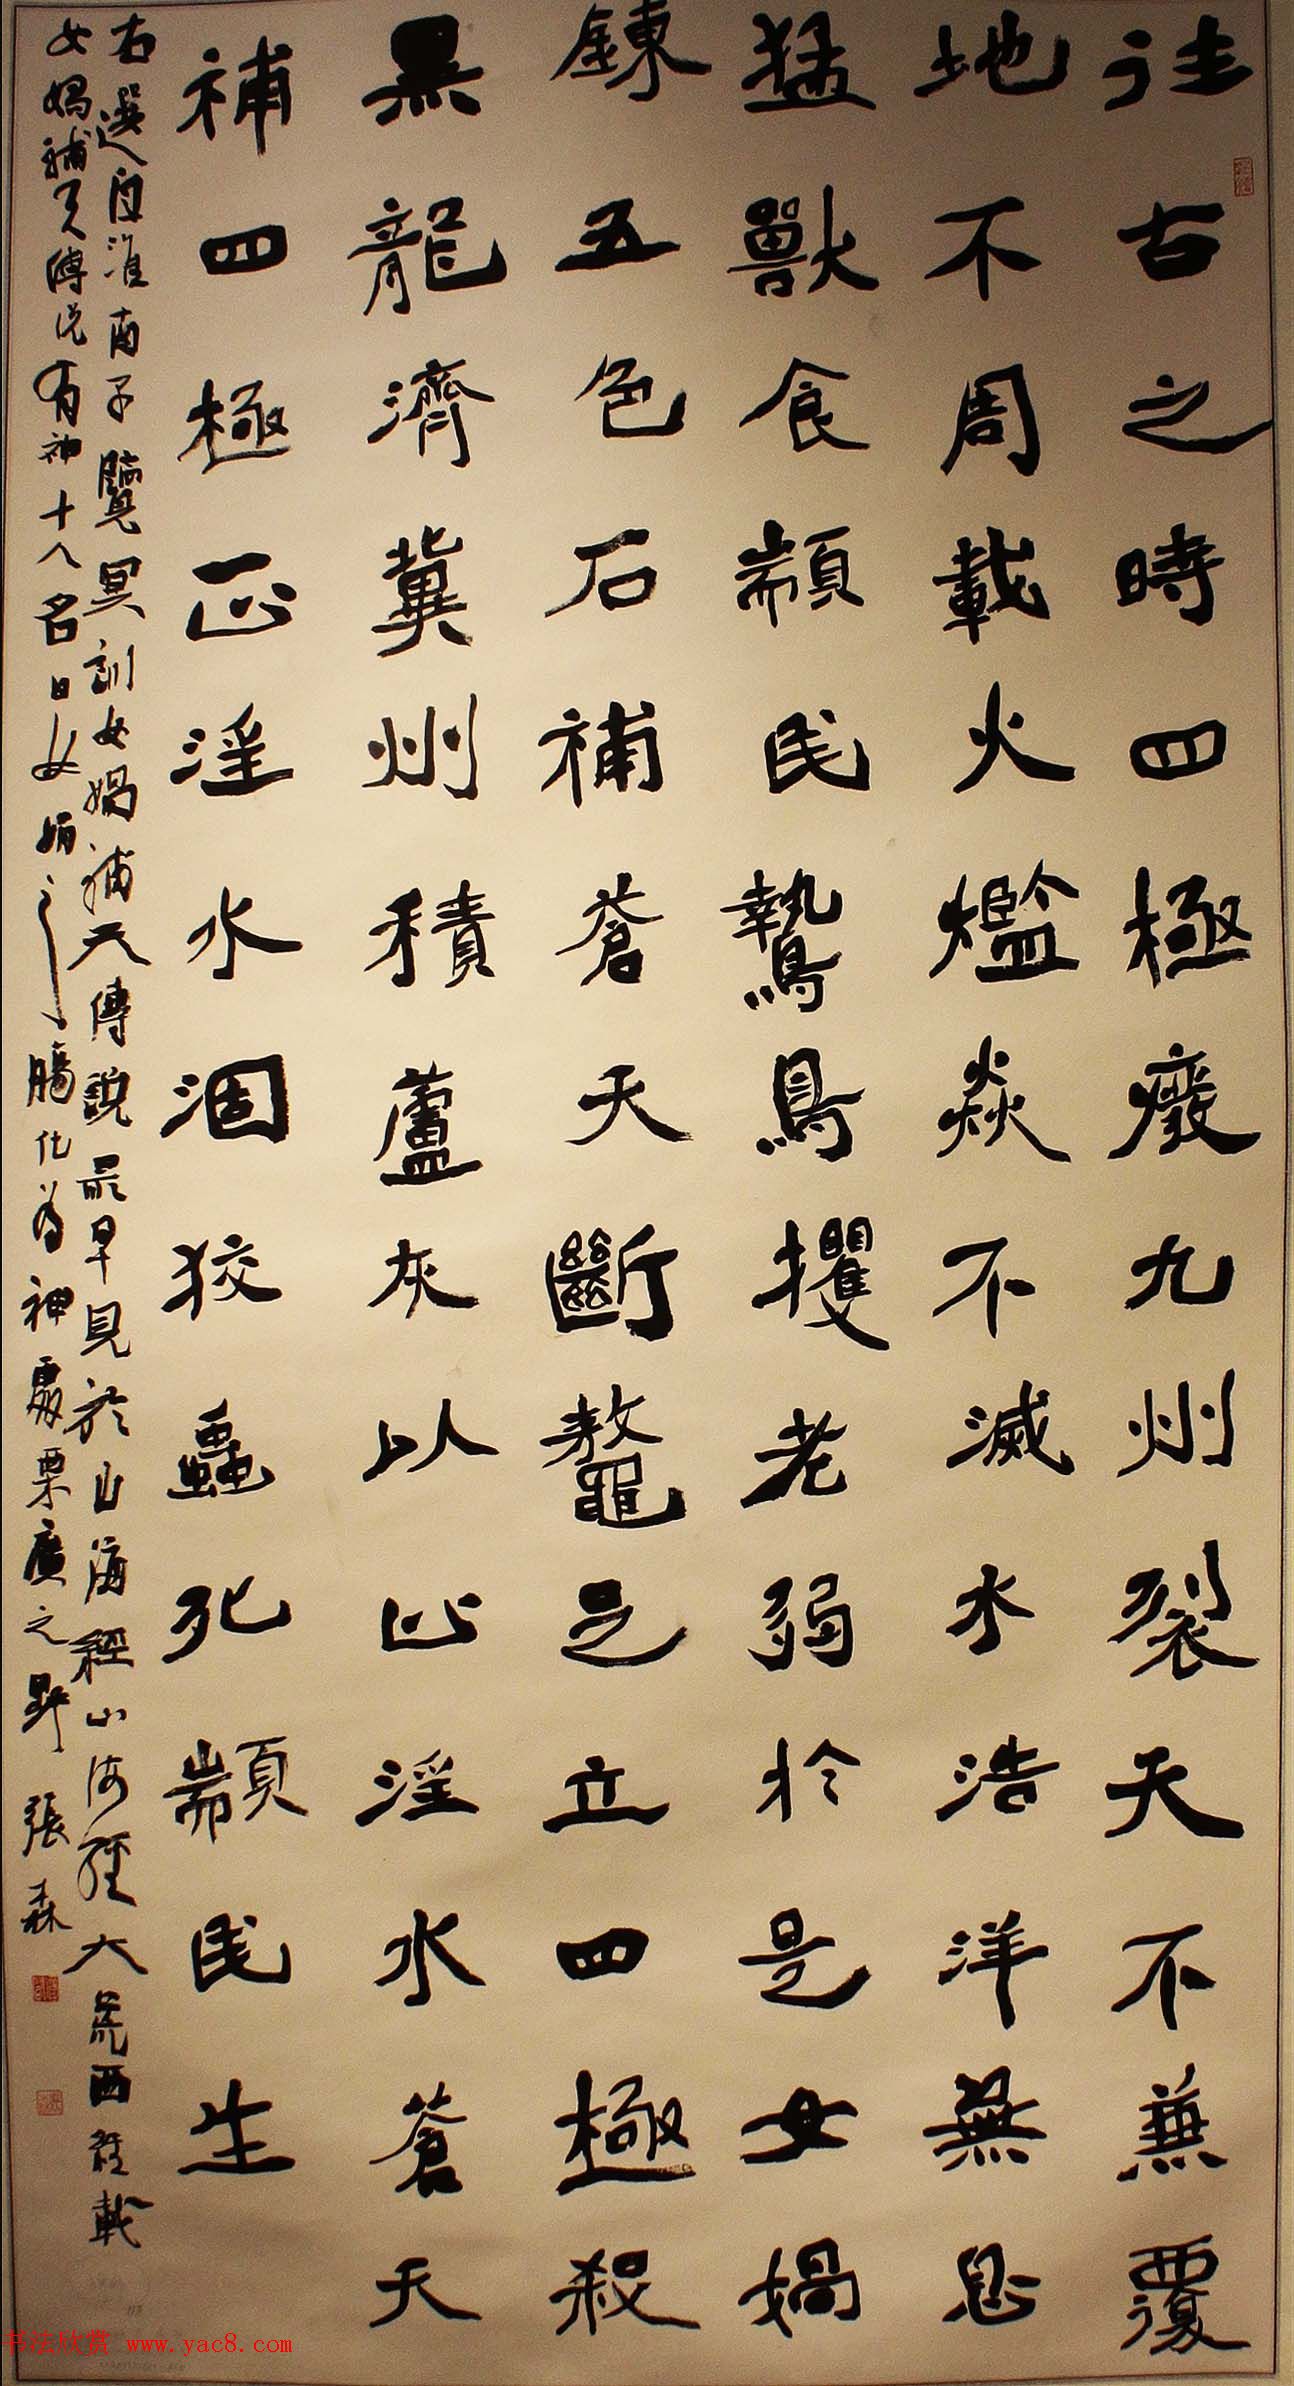 往古之時四極廢九州裂天不兼覆
地不周載火爁焱不滅水浩洋無息
猛獸食顓民鷙鳥攫老弱於是女媧
鍊五色石補蒼天斷鼇足立四極殺
黑龍濟冀州積蘆灰以止淫水蒼天
補四極正淫水涸狡蟲死顓民生
右選自淮南子覽冥訓女媧補天傳說最早見於山海經山海經大荒西經載
女媧補天傳說有神十人名曰女媧之腸化為神處栗廣之野 張森
书法欣赏 www.yac8.com